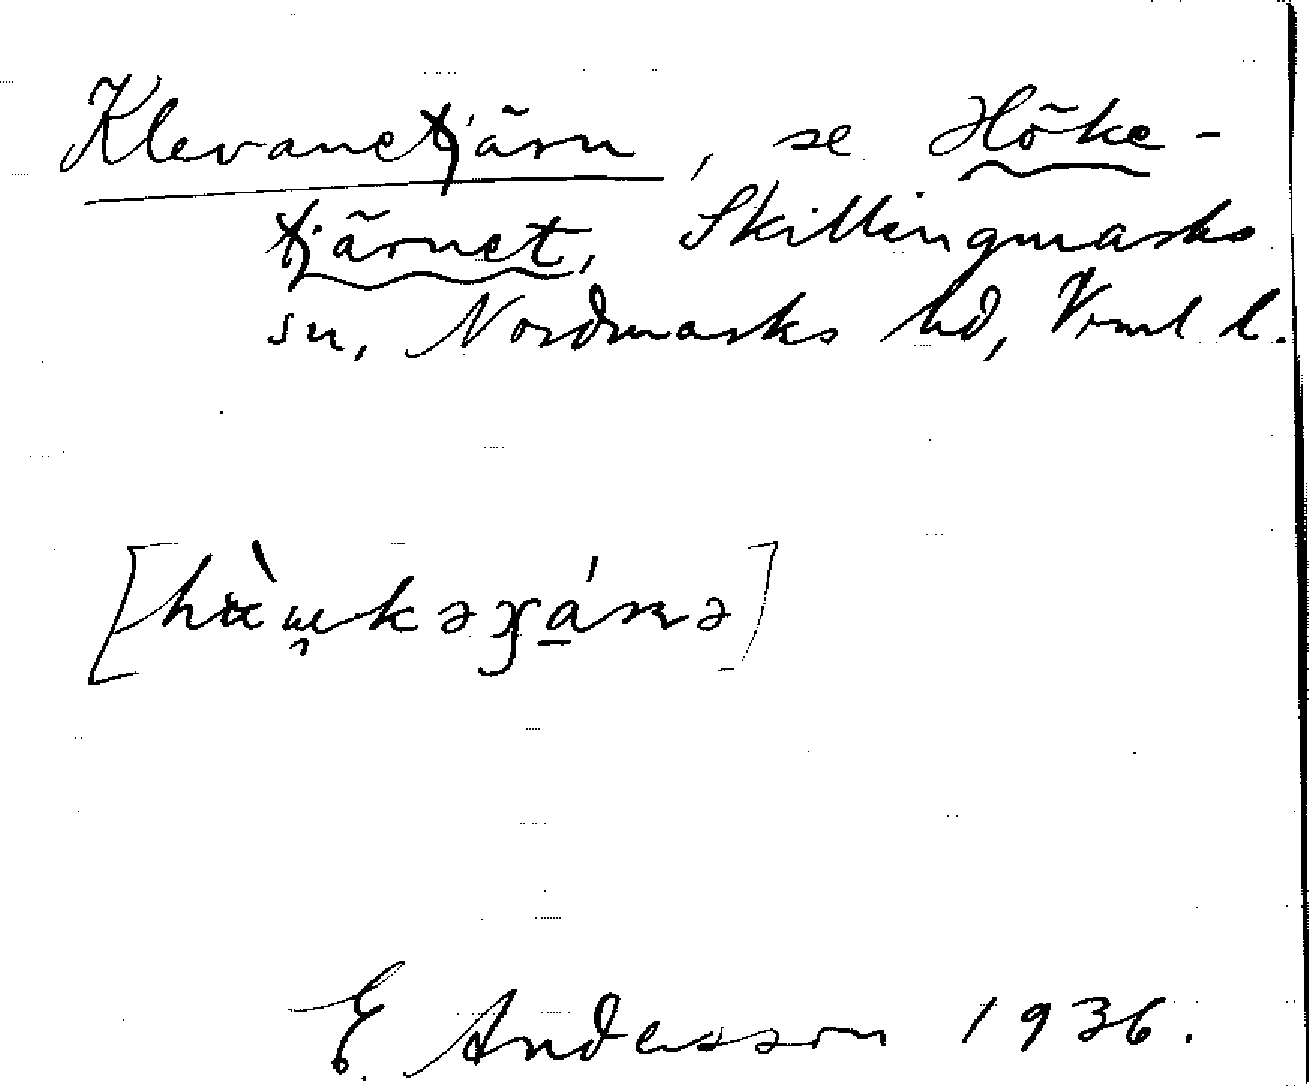 Klevanetjärn, se Höke-
tjärnet, Skillingmarks
sn, Nordmarks hd, Vrml l.
E Andersson 1936.